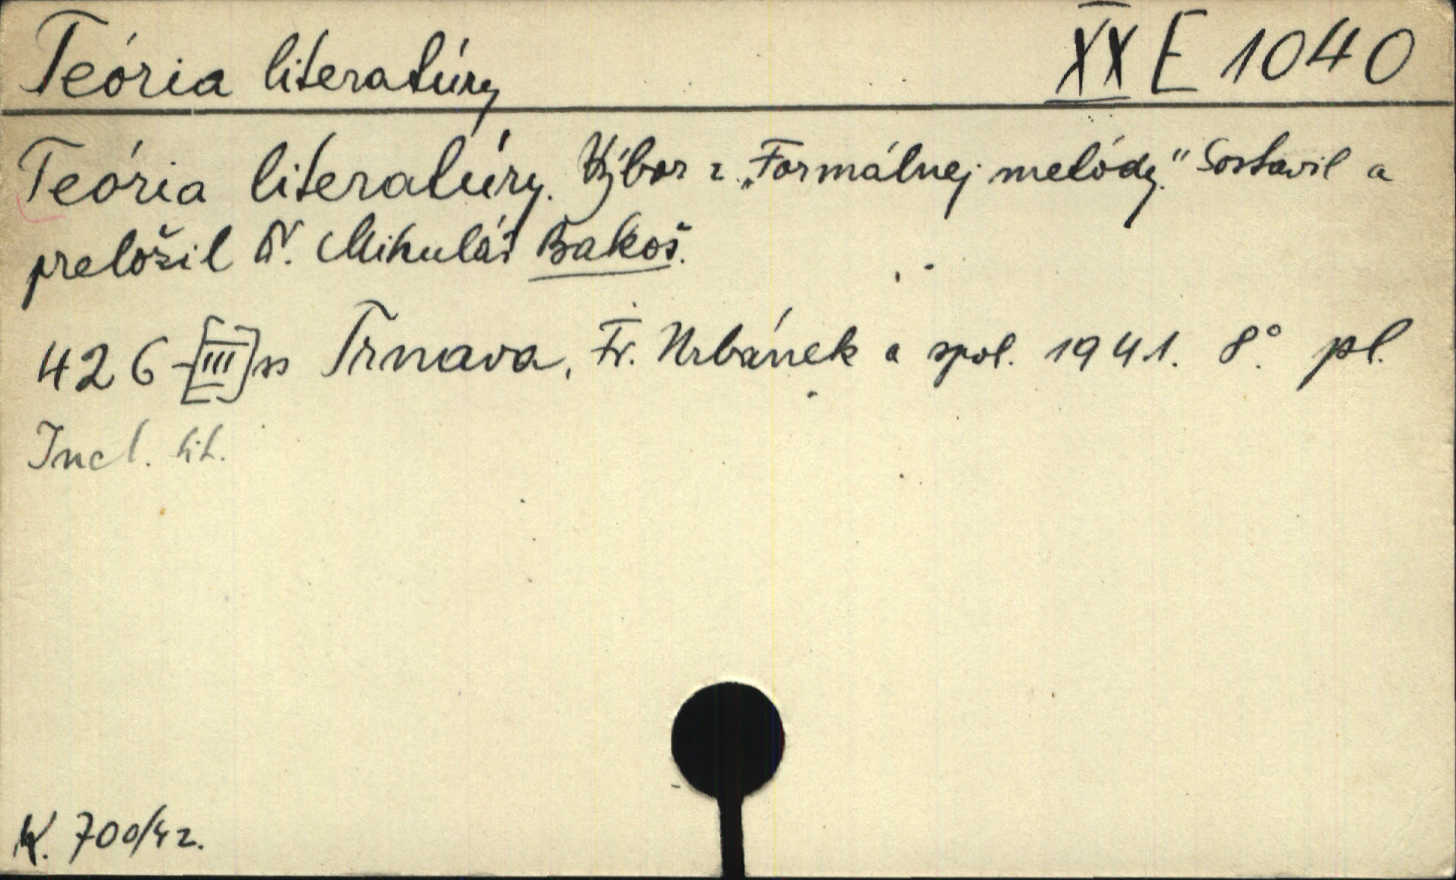 Teória literatúry XX E 1040
Teória literatúry. Výbor z „Formálnej metódy." Sostavil a
preložil Dr. Mikuláš Bakoš.
426-[III] ss Trnava, Fr. Urbánek a spol. 1941. 8°. pl.
Incl. lit.
K. 700/42.